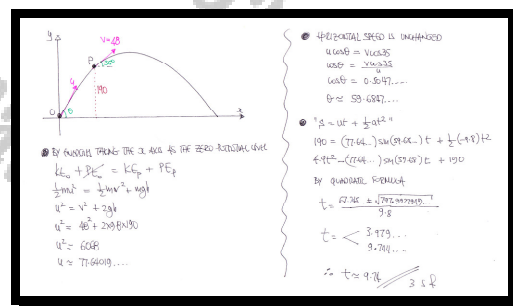 y
V=48
P
35°
u
190
θ
O
x
BY ENERGIES TAKING THE x AXIS AS THE ZERO POTENTIAL LEVEL
KE₀ + PE₀ = KEp + PEp
½mu² = ½mv² + mgh
u² = v² + 2gh
u² = 48² + 2×9.8×190
u² = 6028
u ≈ 77.64019....
HORIZONTAL SPEED IS UNCHANGED
u cosθ = v cos35
cosθ = vcos35/u
cosθ = 0.5047....
θ ≈ 59.6847....
"s = ut + ½at²"
190 = (77.64...) sin(59.68...) t + ½(-9.8)t²
4.9t² - (77.64...) sin(59.68) t + 190
BY QUADRATIC FORMULA
9.8
t = < 3.979...
9.744...
∴ t ≈ 9.74
3 s.f